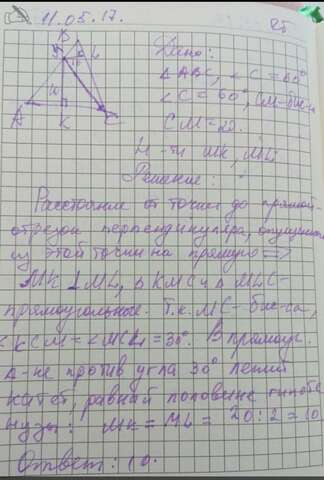 11.05.17.
25
B
M
L
10
10
A
K
C
Дано:
△ABC, ∠C = 60°
∠C = 60°, CM-бис-а
CM = 20.
Н-ти MK, ML;
Решение:
Расстояние от точки до прямой-
отрезок перпендикуляра, опущенного
из этой точки на прямую =>
MK ⊥ ML, △ KMC и △ MLC-
прямоугольные. Т.к. MC- бис-са,
∠ KCM = ∠MCL = 30°. В прямоуг.
△-ке против угла 30° лежит
катет, равный половине гипоте
нузы: MK = ML = 20:2=10
Ответ: 10.